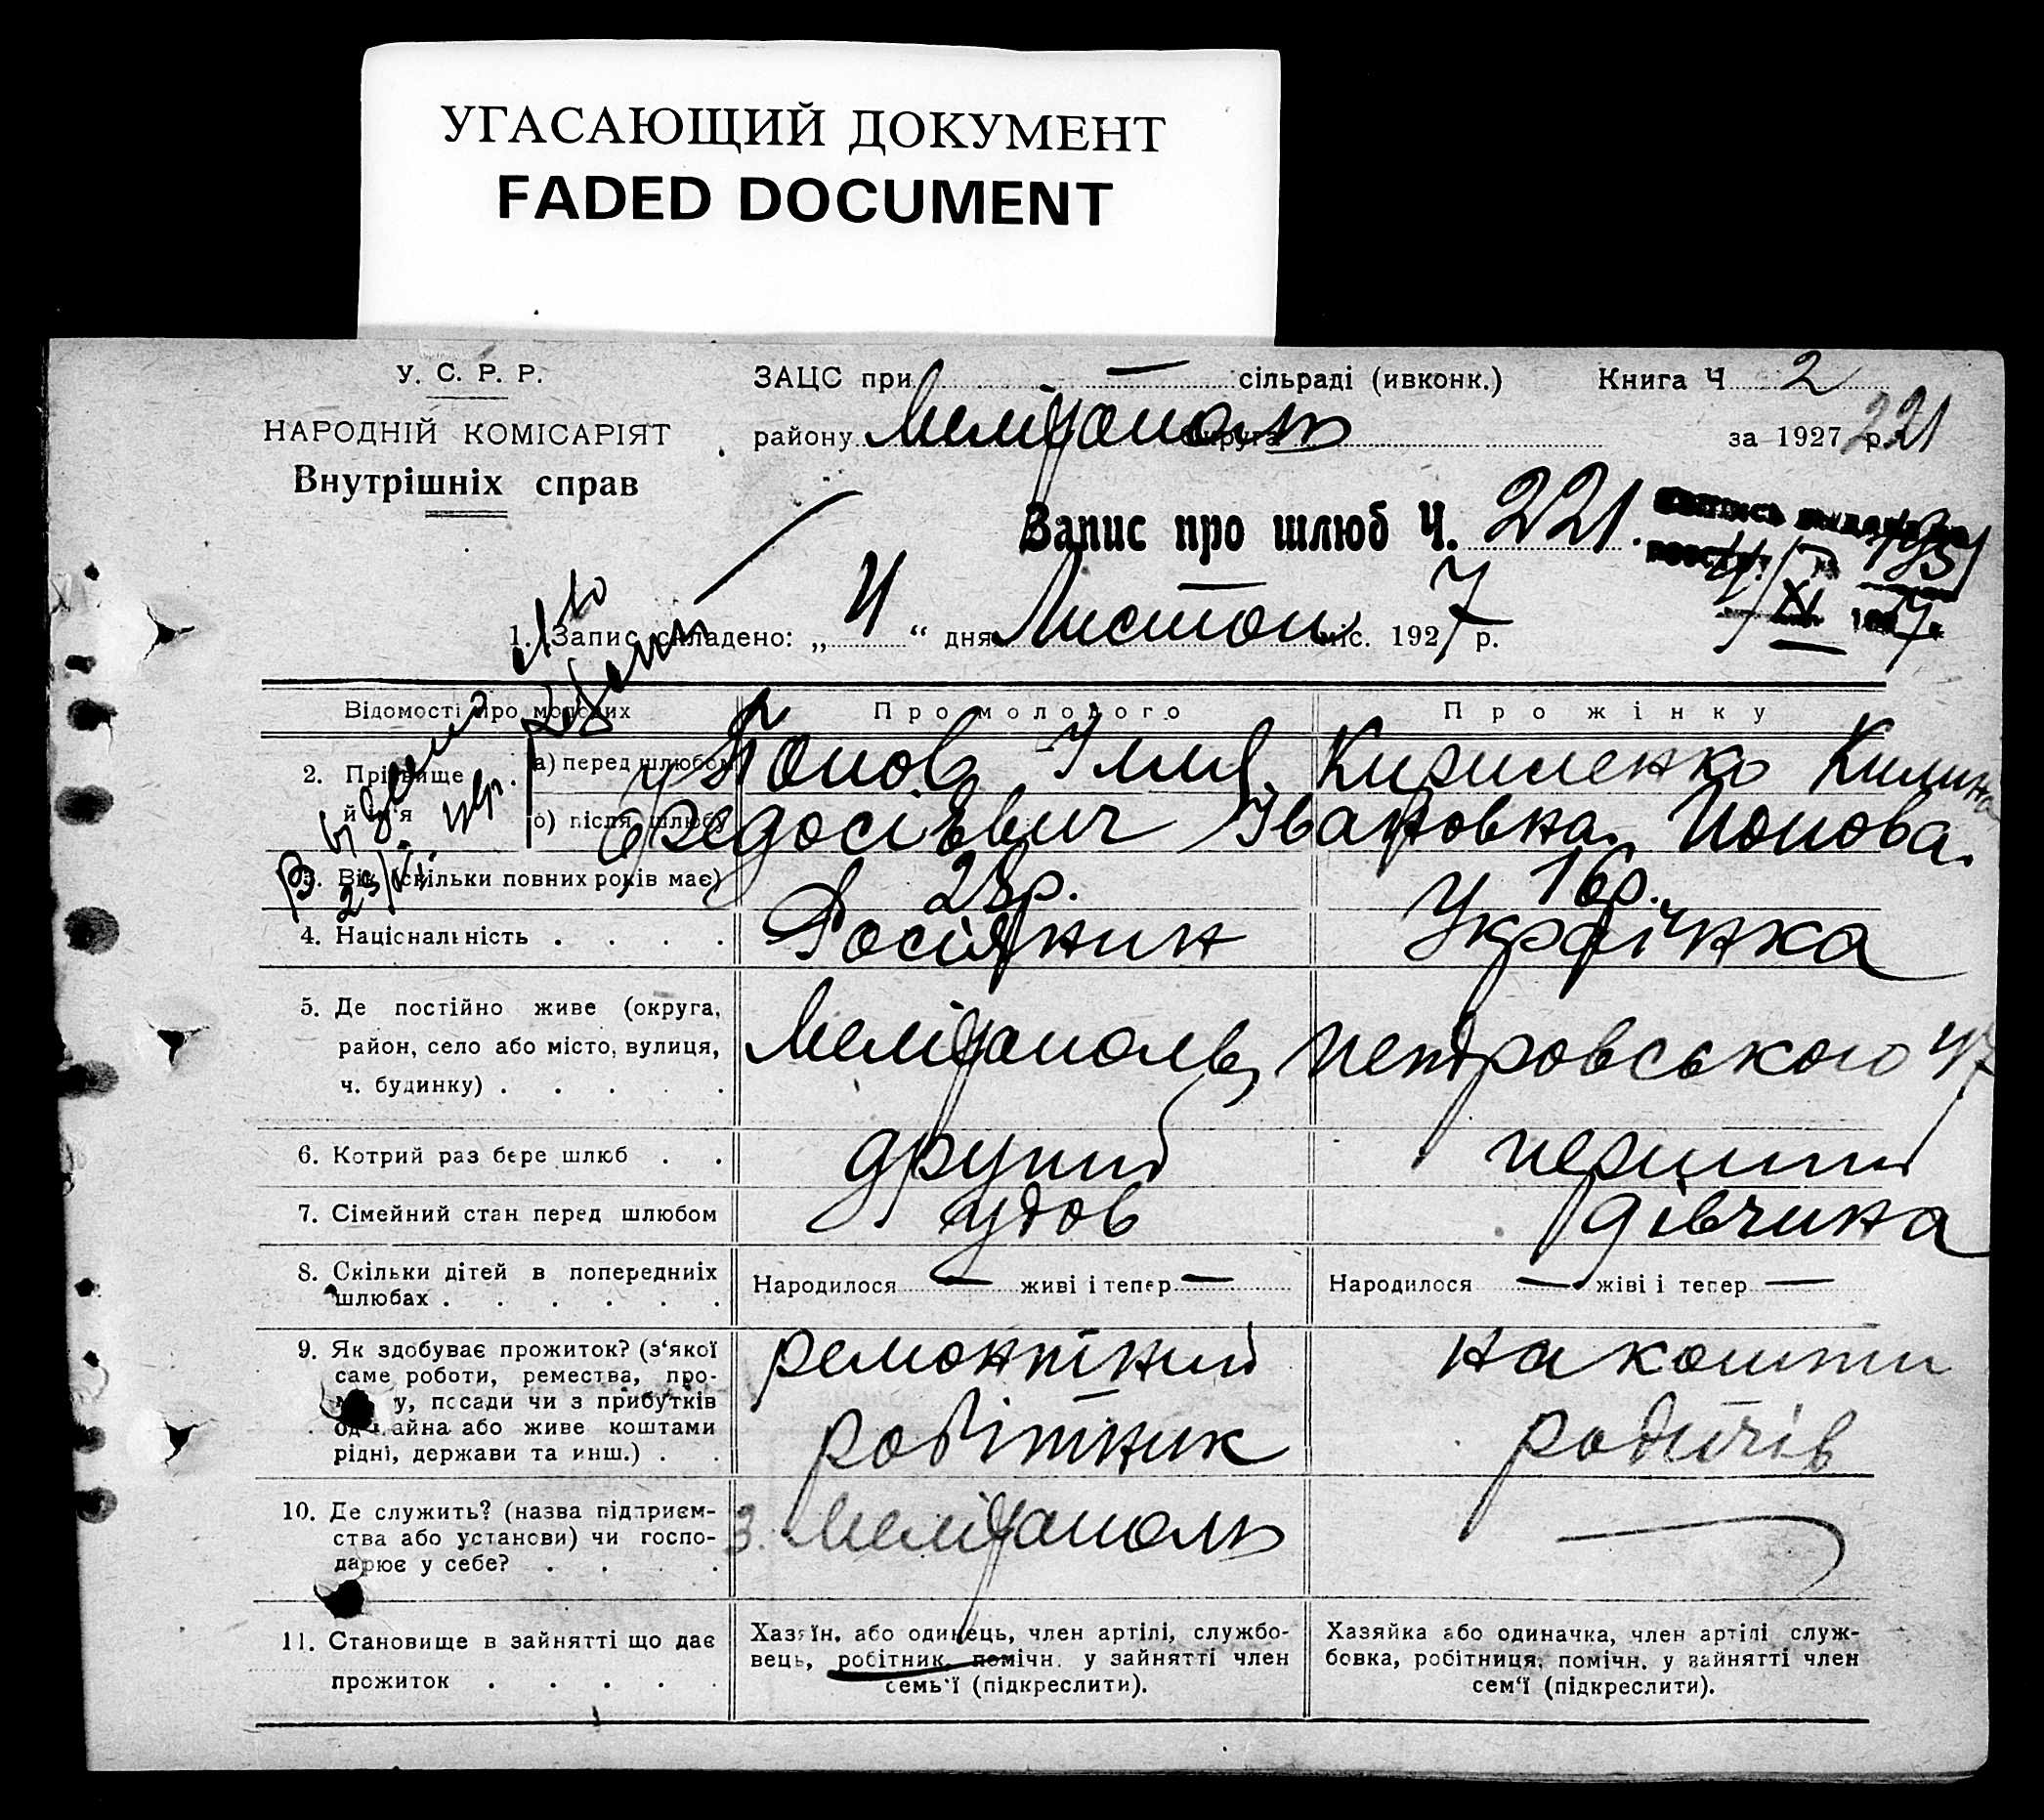 УГАСАЮЩИЙ ДОКУМЕНТ
FADED DOCUMENT
У. С. Р. Р.
НАРОДНІЙ КОМІСАРІЯТ
Внутрішніх справ
ЗАЦС при — сільраді (ивконк.) Книга Ч 2
району Мелітополь округа за 1927 р. 221
Запис про шлюб Ч. 221.
1. Запис складено: „ 4 “ дня Листоп міс. 1927 р.
Відомості про молодих
Про молодого
Про жінку
2. Прізвище й ім'я
а) перед шлюбом
б) після шлюбу
Попов Ілля
Федосієвич
Кириленко Килина
Івановна. Попова.
3. Вік (скільки повних років має)
28р.
16р.
4. Національність . . . .
Росіянин
Українка
5. Де постійно живе (округа,
район, село або місто, вулиця,
ч. будинку) . . . . .
Мелітополь, Петровського 47
6. Котрий раз бере шлюб . .
другий
перший
7. Сімейний стан перед шлюбом
удов
дівчина
8. Скільки дітей в попередниіх
шлюбах . . . . . .
Народилося — живі і тепер —
Народилося — жіві і тепер —
9. Як здобуває прожиток? (з‘якої
саме роботи, ремества, про-
у, посади чи з прибутків
майна або живе коштами
рідні, держави та инш.) . .
ремонтний
робітник
на кошти
родичів
10. Де служить? (назва підприєм-
ства або установи) чи госпо-
дарює у себе? . . . .
з. Мелітополь
11. Становище в зайнятті що дає
прожиток . . . . .
Хазяїн, або одинець, член артілі, службо-
вець, робітник, помічн. у зайнятті член
семь‘ї (підкреслити).
Хазяйка або одиначка, член артілі служ-
бовка, робітниця, помічн. у зайнятті член
сем‘ї (підкреслити).